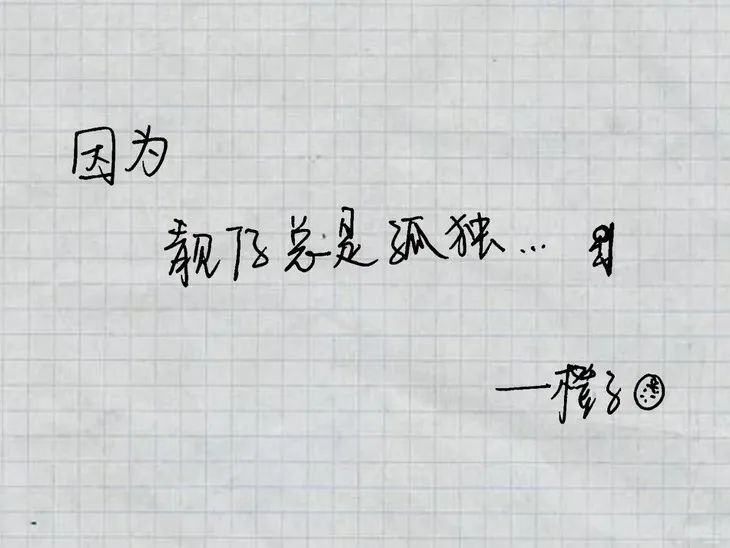 因为
靓仔总是孤独...
——橙子